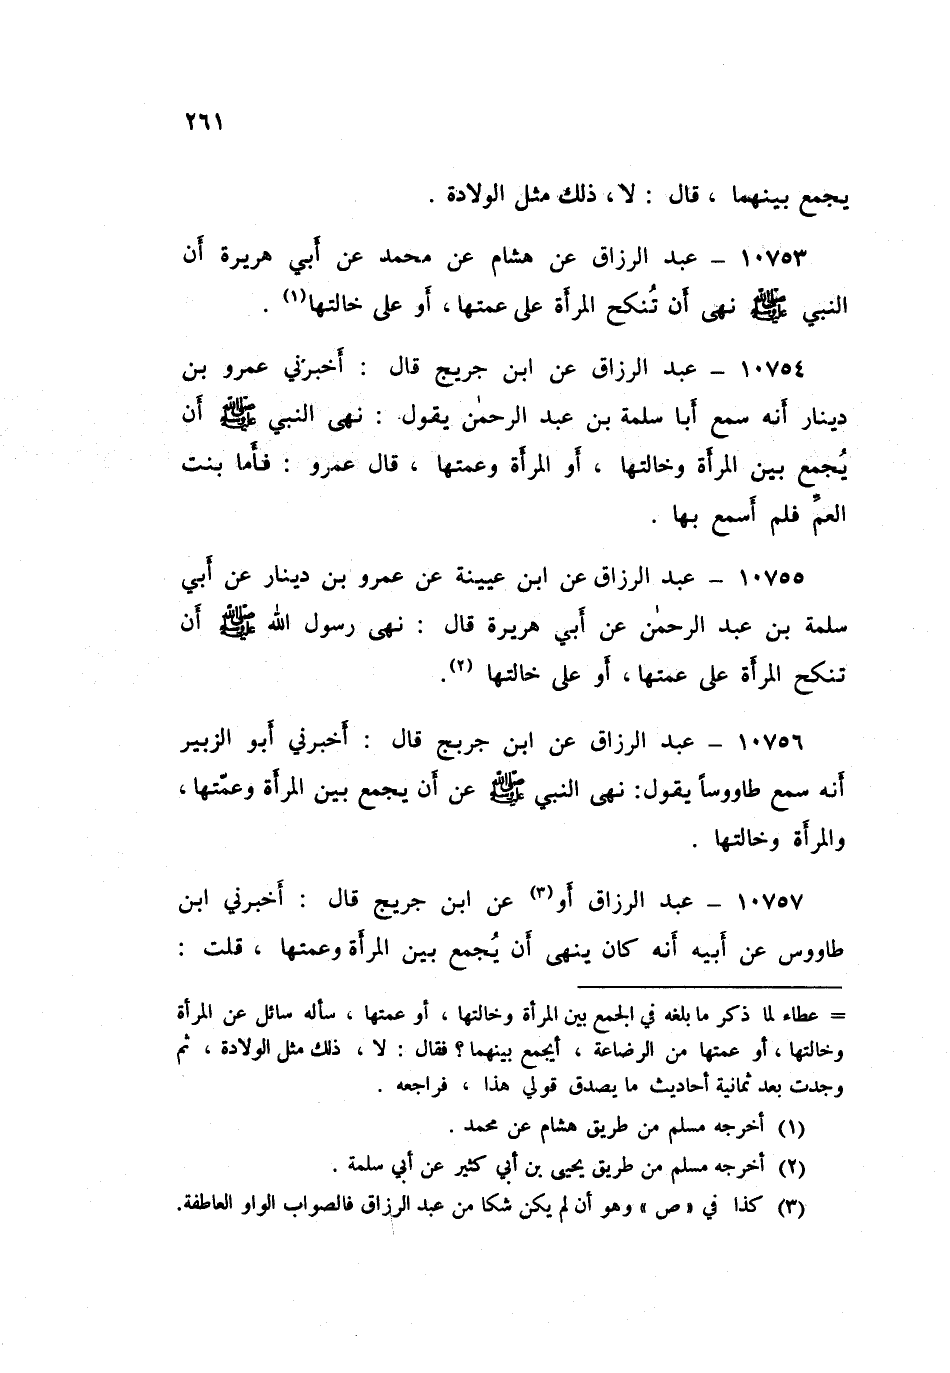 ٢٦١
يجمع بينهما ، قال : لا، ذلك مثل الولادة .
١٠٧٥٣ ـ عبد الرزاق عن هشام عن محمد عن أَبي هريرة أَن
النبي ﷺ نهى أَن تُنكح المرأَة على عمتها، أَو على خالتها(١) .
١٠٧٥٤ ـ عبد الرزاق عن ابن جريج قال : أَخبرني عمرو بن
دينار أَنه سمع أَبا سلمة بن عبد الرحمٰن يقول : نهى النبي ﷺ أَن
يُجمع بين المرأَة وخالتها ، أَو المرأَة وعمتها ، قال عمرو : فأَما بنت
العمِّ فلم أَسمع بها .
١٠٧٥٥ ـ عبد الرزاق عن ابن عيينة عن عمرو بن دينار عن أَبي
سلمة بن عبد الرحمٰن عن أَبي هريرة قال : نهى رسول الله ﷺ أَن
تنكح المرأَة على عمتها، أَو على خالتها (٢).
١٠٧٥٦ ـ عبد الرزاق عن ابن جريج قال : أَخبرني أَبو الزبير
أَنه سمع طاووساً يقول: نهى النبي ﷺ عن أَن يجمع بين المرأَة وعمّتها،
والمرأَة وخالتها .
١٠٧٥٧ ـ عبد الرزاق أَو(٣) عن ابن جريج قال : أَخبرني ابن
طاووس عن أَبيه أَنه كان ينهى أَن يُجمع بين المرأَة وعمتها ، قلت :
= عطاء لما ذكر ما بلغه في الجمع بين المرأة وخالتها ، أو عمتها ، سأله سائل عن المرأة
وخالتها ، أو عمتها من الرضاعة ، أيجمع بينهما ؟ فقال : لا ، ذلك مثل الولادة ، ثم
وجدت بعد ثمانية أحاديث ما يصدق قولي هذا ، فراجعه .
(١) أخرجه مسلم من طريق هشام عن محمد .
(٢) أخرجه مسلم من طريق يحيى بن أبي كثير عن أبي سلمة .
(٣) كذا في « ص » وهو أن لم يكن شكا من عبد الرزاق فالصواب الواو العاطفة.